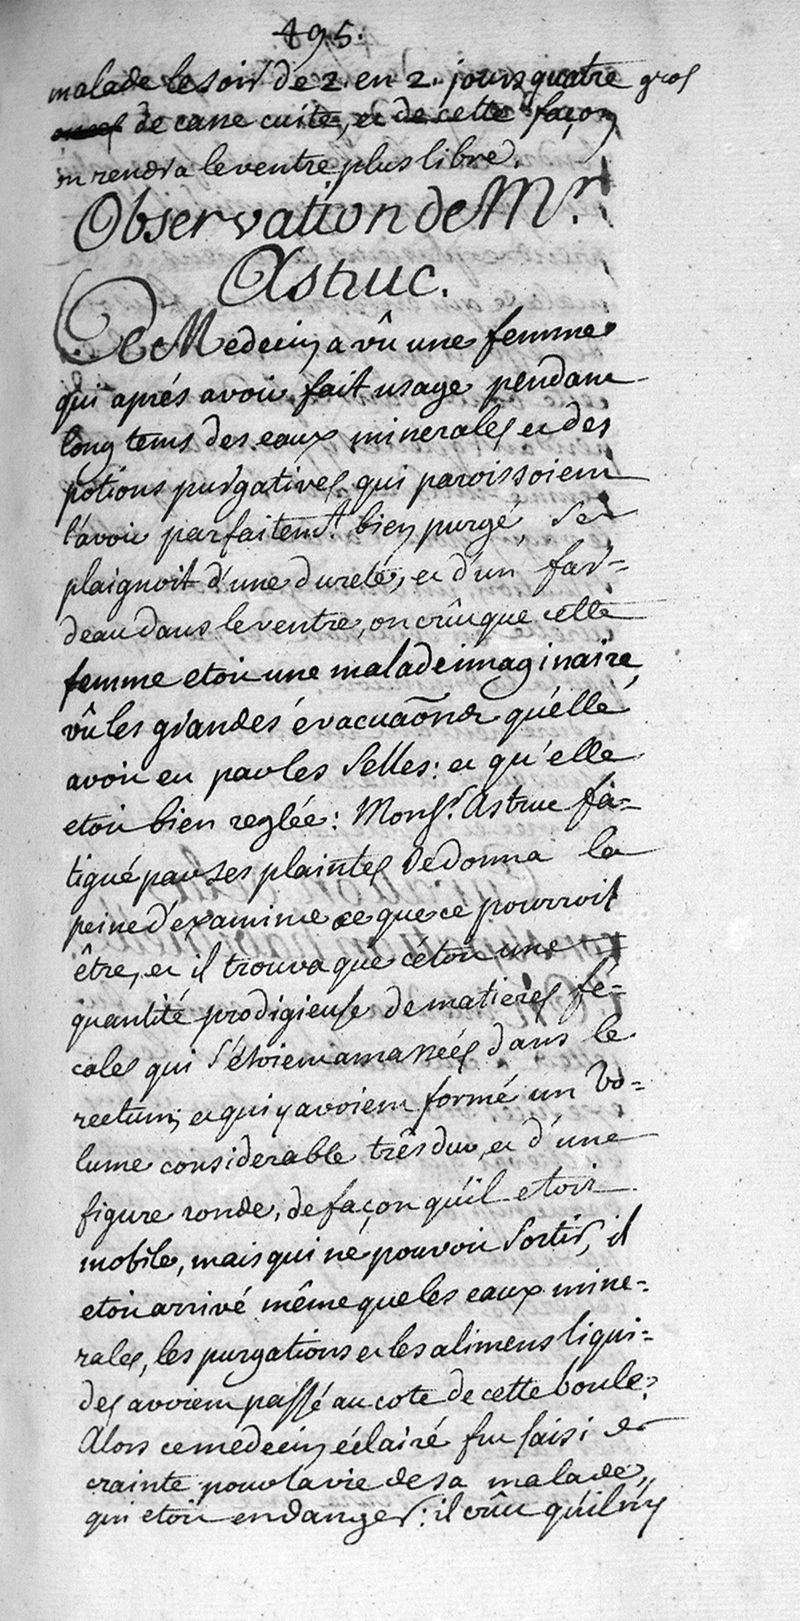 495.
malade le soir de 2. en 2. jours quatre gros
onces de casse cuite, et de cette façon
on rendra le ventre plus libre.
Observation de Mr.
Astruc.
Ce Medecin a vû une femme
qui aprés avoir fait usage pendant
long tems des eaux minerales et des
potions purgatives qui paroissoient
l'avoir parfaitemt. bien purgé, se
plaignoit d'une dureté, et d'un far=
deau dans le ventre, on crût que cette
femme etoit une malade imaginaire,
vû les grandes évacuaõns qu'elle
avoit eu par les selles: et qu'elle
etoit bien reglée: Monsr. Astruc fa=
tigué par ses plaintes se donna la
peine d'examiner ce que ce pourroit
être, et il trouva que cetoit une
quantité prodigieuse de matieres fé=
cales qui s'étoient amassées dans le
rectum; et qui y avoient formé un vo=
lume considerable trés dur, et d'une
figure ronde, de façon qu'il etoit
mobile, mais qui ne pouvoit sortir, il
etoit arrivé même que les eaux mine=
rales, les purgations et les alimens liqui=
des avoient passé au coté de cette boule?
Alors ce medecin éclairé fut saisi de
crainte pour la vie de sa malade,
qui etoit en danger: il crût qu'il n'y